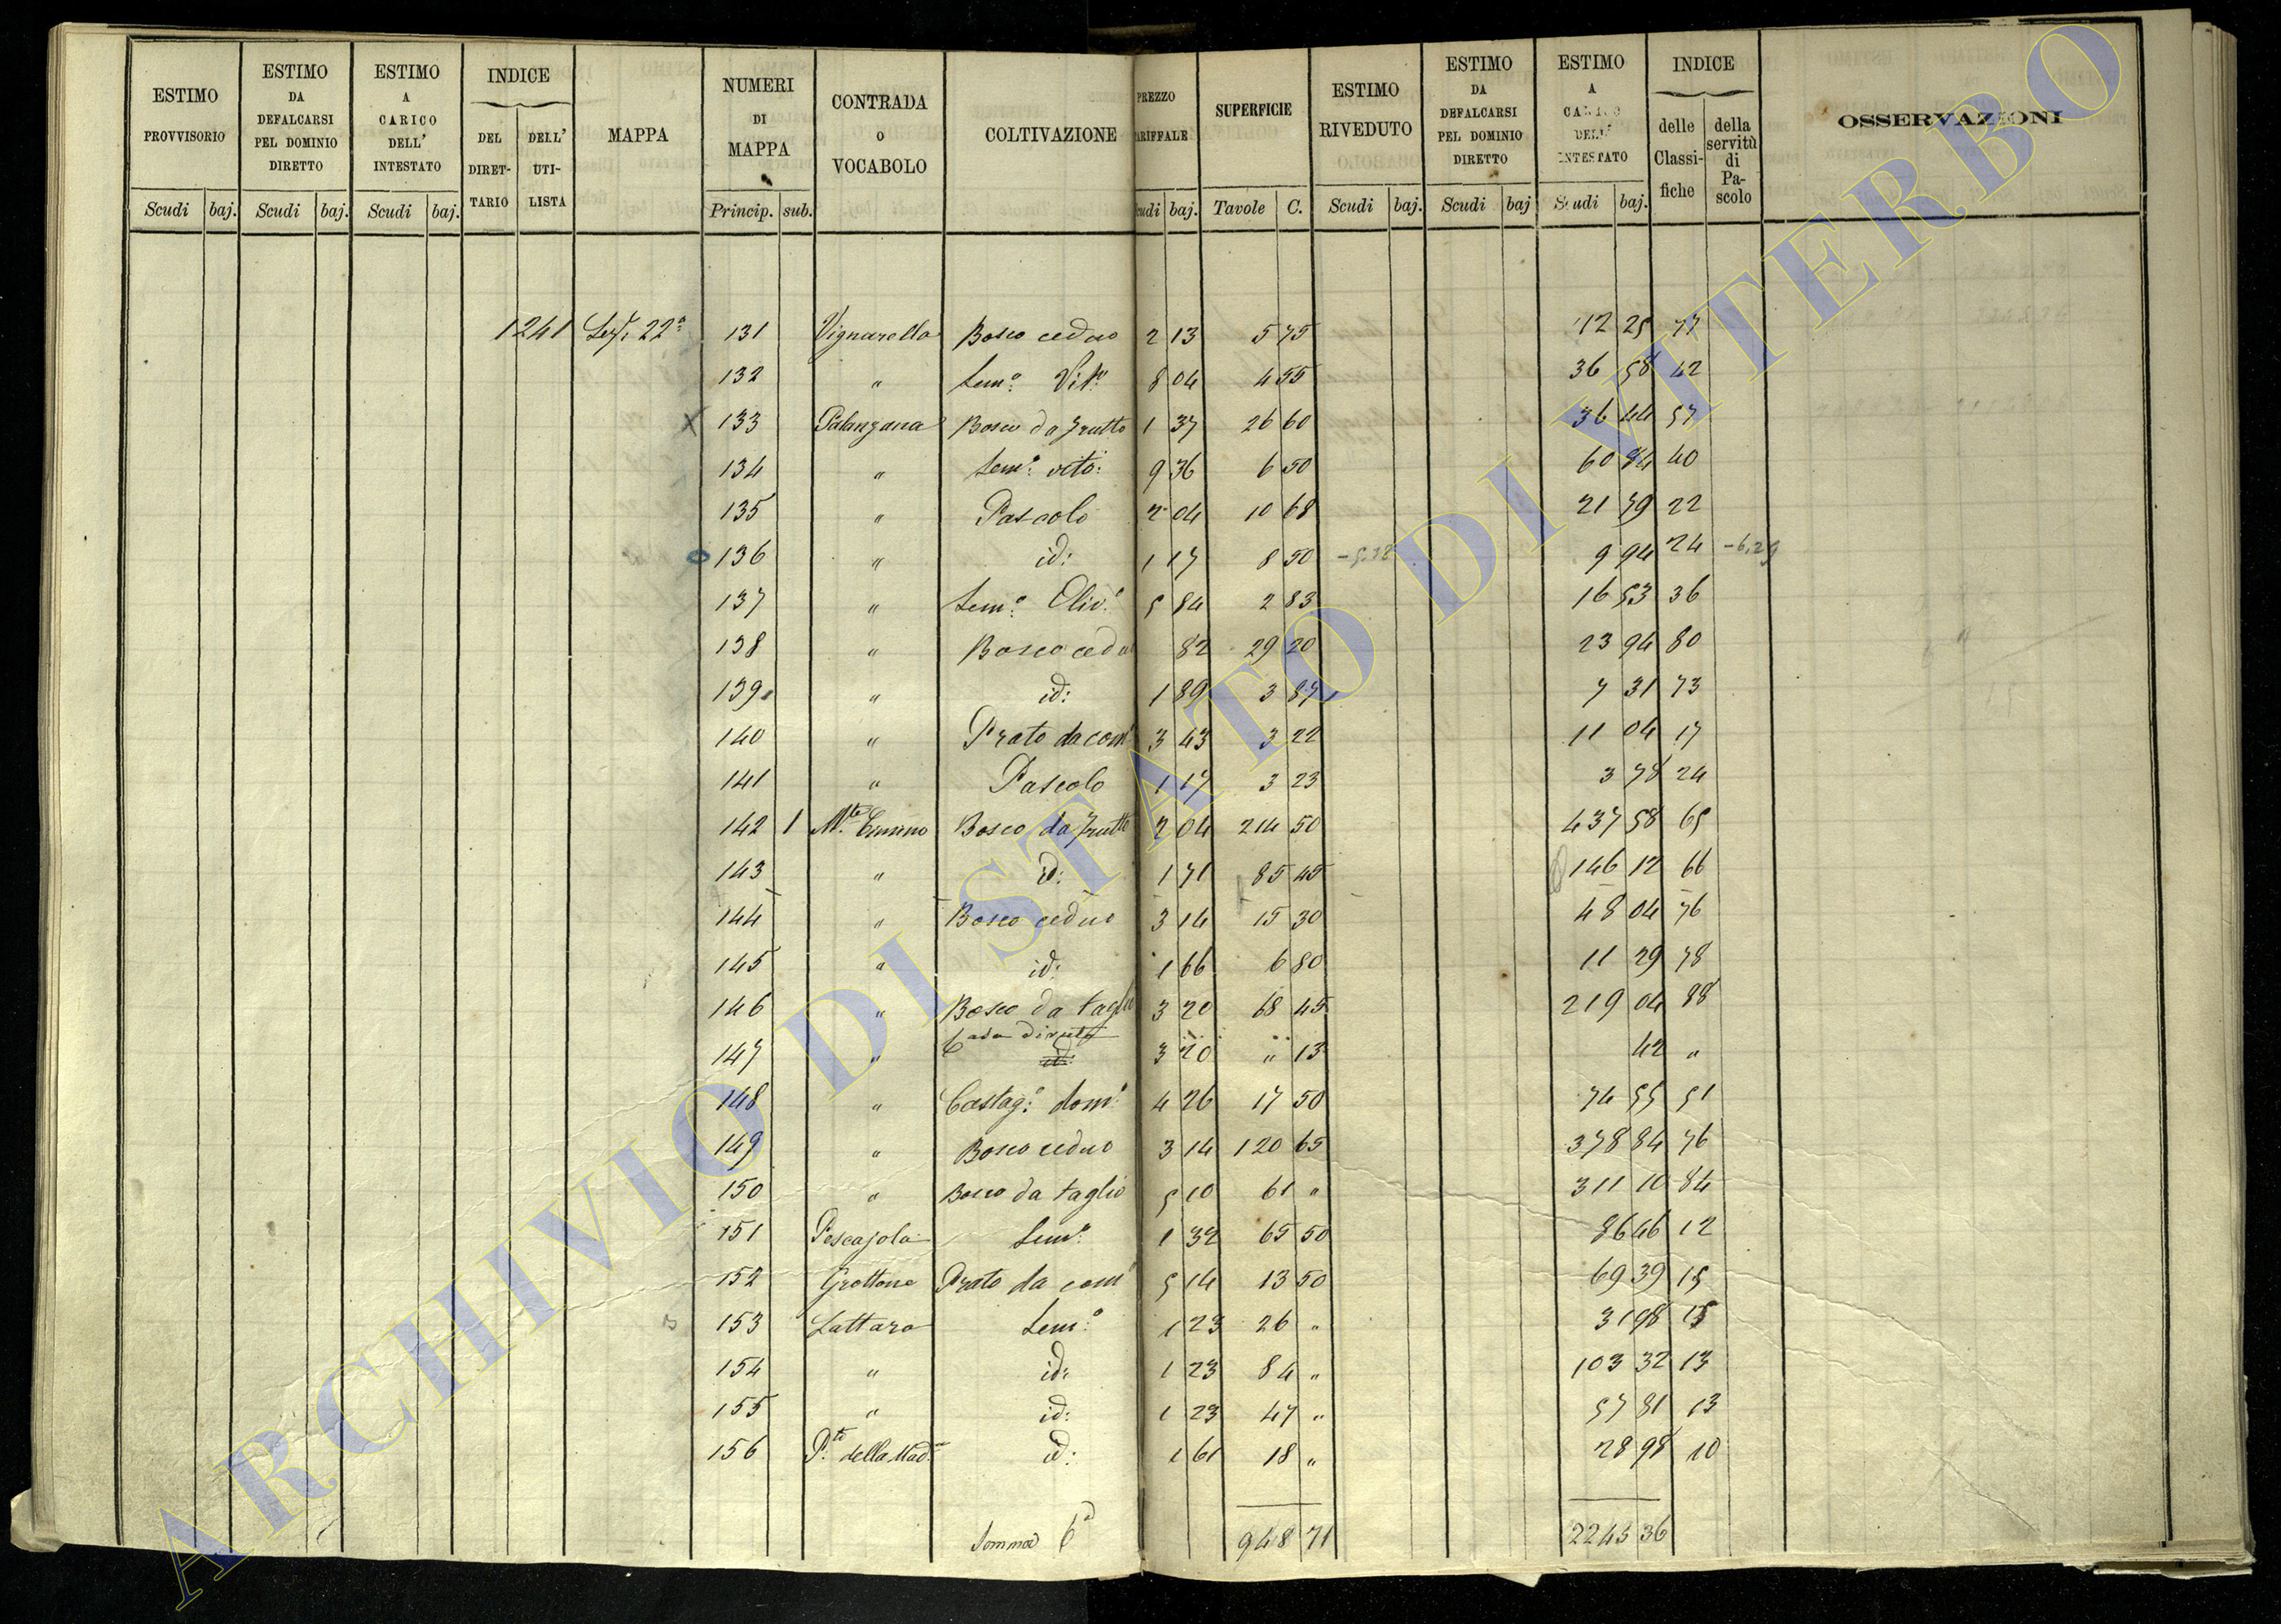 ESTIMO PROVVISORIO | ESTIMO DA DEFALCARSI PEL DOMINIO DIRETTO | ESTIMO A CARICO DELL' INTESTATO | INDICE | MAPPA | NUMERI DI MAPPA | CONTRADA o VOCABOLO | COLTIVAZIONE | PREZZO TARIFFALE | SUPERFICIE | ESTIMO RIVEDUTO | ESTIMO DA DEFALCARSI PEL DOMINIO DIRETTO | ESTIMO A CARICO DELL' INTESTATO | INDICE | OSSERVAZIONI
DEL DIRETTARIO | DELL' UTILISTA | delle Classifiche | della servitù di Pascolo
Scudi | baj. | Scudi | baj. | Scudi | baj. | Princip. | sub. | cudi | baj. | Tavole | C. | Scudi | baj. | Scudi | baj | Scudi | baj.
1241 Sez. 22a 131 Vignarella Bosco ceduo 2 13 5 75 12 25 77
132 " Sem.o Vit.o 8 04 4 55 36 58 42
X 133 Palanzana Bosco da frutto 1 37 26 60 36 44 57
134 " Sem.o vito: 9 36 6 50 60 84 40
135 " Pascolo 2 04 10 68 21 79 22
136 " id: 1 17 8 50 9 94 24 -6,29
137 " Sem.o Oliv.o 5 84 2 83 16 53 36
138 " Bosco ceduo 82 29 20 23 94 80
139 " id: 1 89 3 87 7 31 73
140 " Prato da com.e 3 43 3 22 11 04 17
141 " Pascolo 1 17 3 23 3 78 24
142 1 M.te Cimino Bosco da frutto 2 04 214 50 437 58 65
143 " id: 1 71 85 45 146 12 66
144 " Bosco ceduo 3 14 15 30 48 04 76
145 " id: 1 66 6 80 11 29 78
146 " Bosco da taglio 3 20 68 45 219 04 88
Casa diruta
147 " id: 3 20 " 13 42 "
148 " Castag.o dom.o 4 26 17 50 74 55 51
149 " Bosco ceduo 3 14 120 65 378 84 76
150 " Bosco da taglio 5 10 61 " 311 10 84
151 Pescajola Sem.o 1 32 65 50 86 46 12
152 Grottone Prato da com.e 5 14 13 50 69 39 15
153 Lattara Sem.o 1 23 26 " 31 98 13
154 " id: 1 23 84 " 103 32 13
155 " id: 1 23 47 " 57 81 13
156 P.te della Mad.a id: 1 61 18 " 28 98 10
Somma 948 71 2243 36
ARCHIVIO DI STATO DI VITERBO